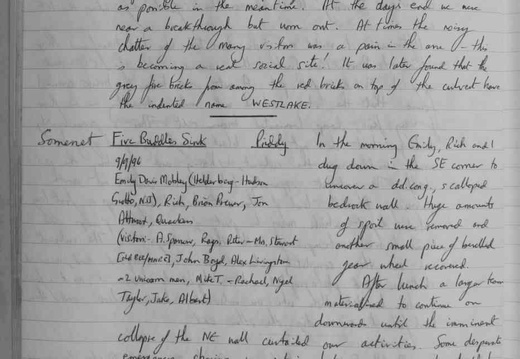 as possible in the meantime. At the days end we were
near a breakthrough but worn out. At times the noisy
chatter of the many visitors was a pain in the arse - this
is becoming a real social site! It was later found that the
grey fire bricks from among the red bricks on top of the culvert have
the indented name WESTLAKE.
Somerset Five Buddles Sink Priddy
9/9/96
Emily Davis Mobley (Helderberg-Hudson
Grotto, NSS), Rich, Brian Prewer, Jon
Attwood, Quackers
(visitors - A. Sparrow, Rags, Peter - Mrs. Stewart
), John Boyd, Alex Livingston
+2 Unicorn men, Mike T. - Rachael, Nigel
Taylor, Jake, Albert)
In the morning Emily, Rich and I
dug down in the SE corner to
uncover a dd. cong., scalloped
bedrock wall. Huge amounts
of spoil were removed and
another small piece of bevelled
gear wheel recovered.
After lunch a larger team
materialised to continue on
downwards until the imminent
collapse of the NE wall curtailed our activities. Some desperate
emergency shoring